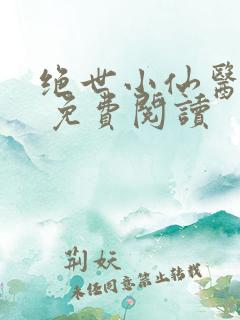 绝世小仙醫
免費閱讀
荊妖
未经同意禁止转载